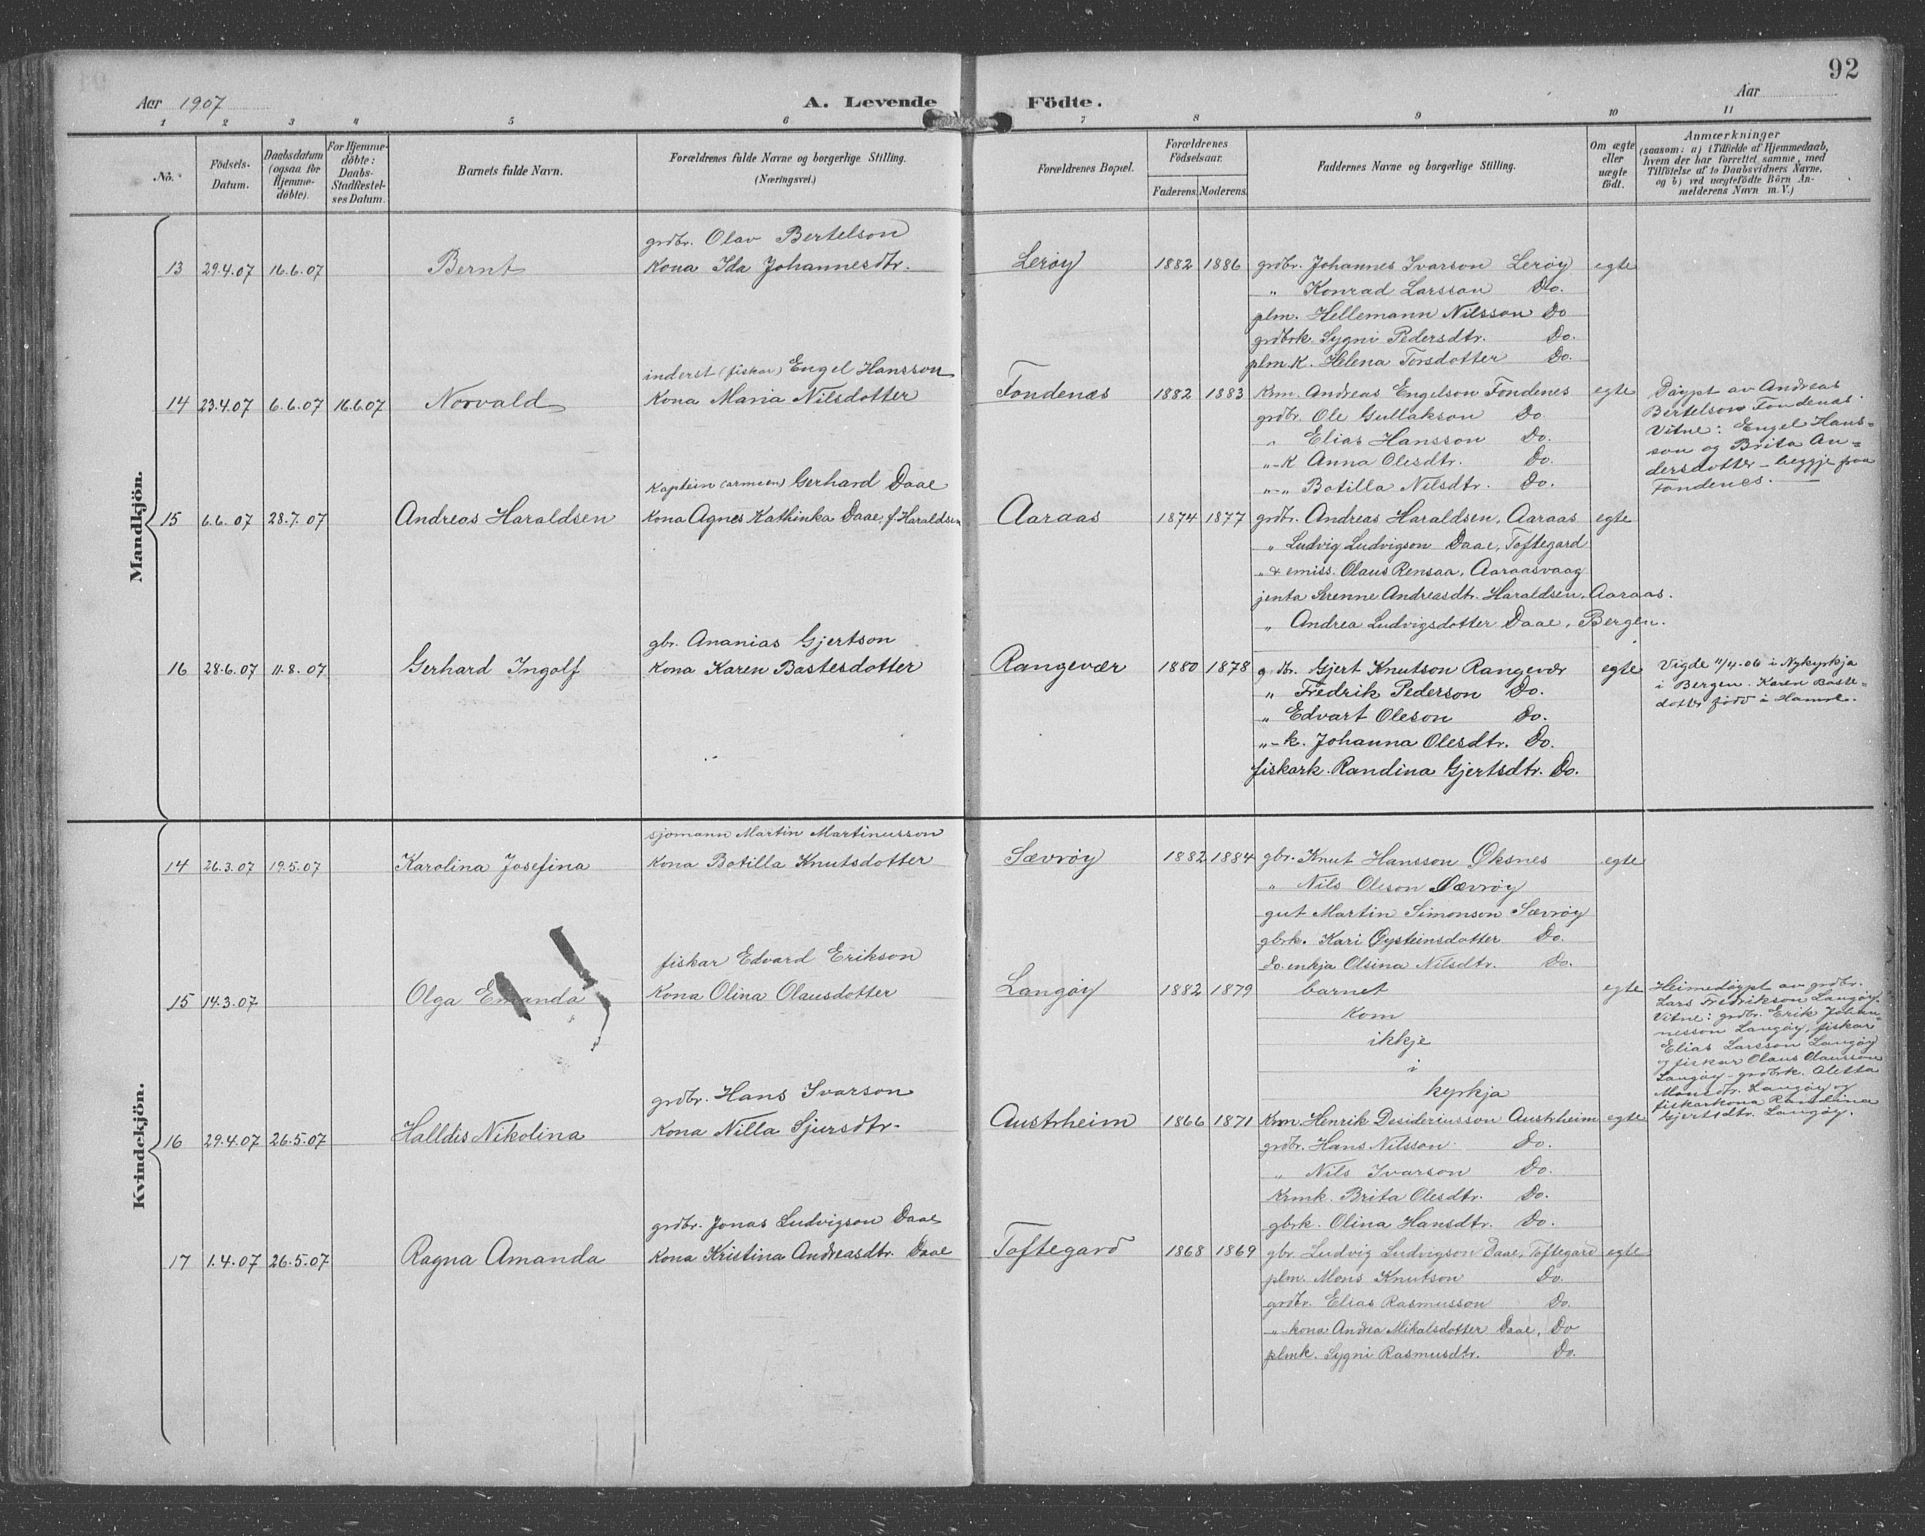 92
Aar 1907
A. Levende Födte.
Aar
1 2 3 4 5 6 7 8 9 10 11
No.
Födsels-Datum.
Daabsdatum (ogsaa for Hjemme-döbte).
For Hjemme-döbte: Daabs-Stadfæstel-ses Datum.
Barnets fulde Navn.
Forældrenes fulde Navne og borgerlige Stilling.
(Næringsvei.)
Forældrenes Bopæl.
Forældrenes Födselsaar.
Faderens. Moderens.
Faddernes Navne og borgerlige Stilling.
Om ægte eller uægte födt.
Anmærkninger
(saasom: a) i Tilfælde af Hjemmedaab, hvem der har forrettet samme, med Tilföielse af to Daabsvidners Navne, og b) ved uægtefödte Börn An-melderens Navn m. V.)
Mandkjön.
grdbr. Olav Bertelson
13 29.4.07 16.6.07 Bernt Kona Ida Johannesdtr. Lerøy 1882 1886 grdbr. Johannes Ivarson Lerøy egte
" Konrad Larsson Do.
plm. Hellemann Nilsson Do
grdbrk. Sygni Pedersdtr. Do.
plm.K. Helena Torsdotter Do.
inderst (fiskar) Engel Hansson
14 23.4.07 6.6.07 16.6.07 Norvald Kona Maria Nilsdotter Fondenæs 1882 1883 Krm. Andreas Engelson Fondenes egte Døypt av Andreas
grdbr. Ole Gullakson Do. Bertelson Fondenæs.
" Elias Hansson Do. Vitne: Engel Hans-
"-K Anna Olesdtr. Do. son og Brita An-
"-" Botilla Nilsdtr. Do. dersdotter – beggje fraa
Fondenes.
Kaptein (armeen) Gerhard Daae
15 6.6.07 28.7.07 Andreas Haraldsen Kona Agnes Kathinka Daae, f. Haraldsen Aaraas 1874 1877 grdbr. Andreas Haraldsen, Aaraas egte
" Ludvig Ludvigson Daae, Toftegard
" & emiss. Olaus Rensaa, Aaraasvaag
jenta Serenne Andreasdtr. Haraldsen, Aaraas.
" Andrea Ludvigsdotter Daae, Bergen.
gbr. Ananias Gjertson
16 28.6.07 11.8.07 Gerhard Ingolf Kona Karen Bastesdotter Rangevær 1880 1878 grdbr. Gjert Knutson Rangevær egte Vigde 11/4-06 i Nykyrkja
" Fredrik Pederson Do. i Bergen. Karen Baste-
" Edvart Oleson Do. dotter född i Hamre.
"-k. Johanna Olesdtr. Do.
fiskark. Randina Gjertsdtr. Do.
Kvindekjön.
sjomann Martin Martinusson
14 26.3.07 19.5.07 Karolina Josefina Kona Botilla Knutsdotter Sævrøy 1882 1884 gbr. Knut Hansson Øksnes egte
" Nils Oleson Sævrøy
gut Martin Simonson Sævrøy
gbrk. Kari Øysteinsdotter Do.
do. enkja Olsina Nilsdtr. Do.
fiskar Edvard Erikson
15 14.3.07 Olga Emanda Kona Olina Olausdotter Langøy 1882 1879 barnet egte Heimedøypt av grdbr.
kom Lars Fredrikson Langøy.
ikkje Vitne: grdbr. Erik Johan-
i nesson Langøy, fiskar
kyrkja Elias Larsson Langøy
og fiskar Olaus Olausson
Langøy – grdbrk. Oletta
Monsdtr. Langøy og
fiskarkona Randina
Gjertsdtr. Langøy.
grdbr. Hans Ivarson
16 29.4.07 26.5.07 Halldis Nikolina Kona Nilla Sjursdtr. Austrheim 1866 1871 Krm. Henrik Desideriusson Austrheim egte
grdbr. Hans Nilsson Do.
" Nils Ivarson Do.
Krmk. Brita Olesdtr. Do.
gbrk. Olina Hansdtr. Do.
grdbr. Jonas Ludvigson Daae
17 1.4.07 26.5.07 Ragna Amanda Kona Kristina Andreasdtr. Daae Toftegard 1868 1869 gbr. Ludvig Ludvigson Daae, Toftegard egte
plm. Mons Knutson Do.
grdbr. Elias Rasmusson Do.
"-kona Andrea Mikalsdotter Daae, Do
plmk. Sygni Rasmusdtr. Do.